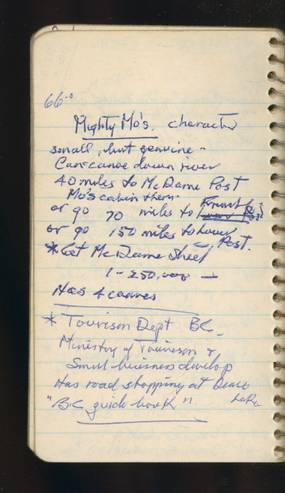 66⁻⁰
Mighty Mo's. character
small, but genuine -
Can canoe down river
40 miles to McDame Post
Mo's cabin there.
or go 70 miles to
or go 150 miles to Lower Post.
* Get McDame Sheet
1-250,000 —
Has 4 canoes
* Tourism Dept BC -
Ministry of Tourism &
Small business develop
Has road stopping at Dease
Lake
"BC guide book"